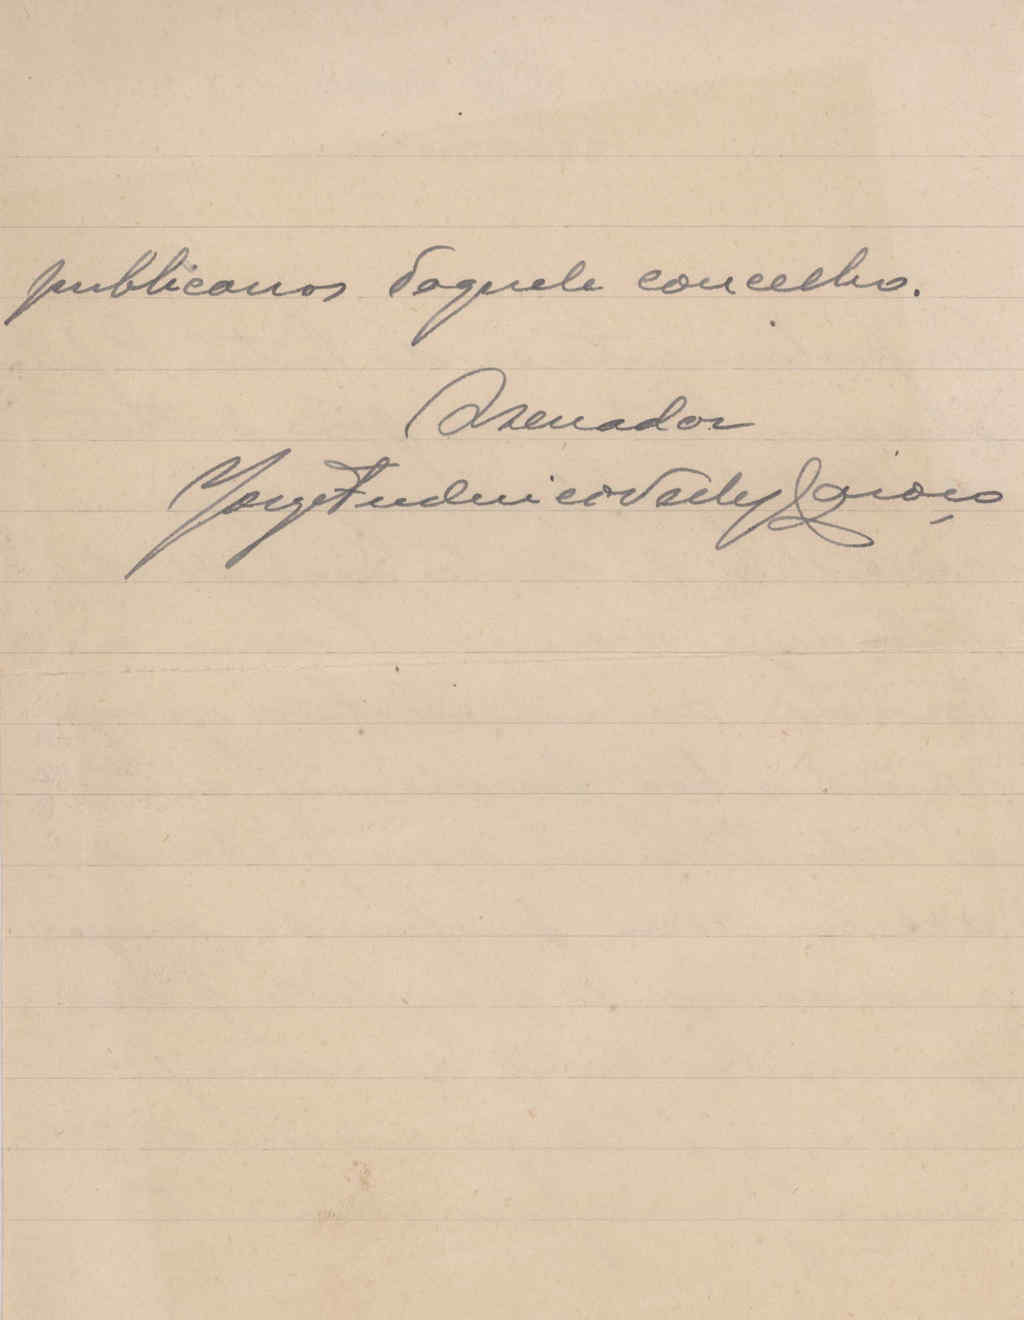 publicanos daquele concelho.
O Senador
Jorge Frederico Vellez Caroço